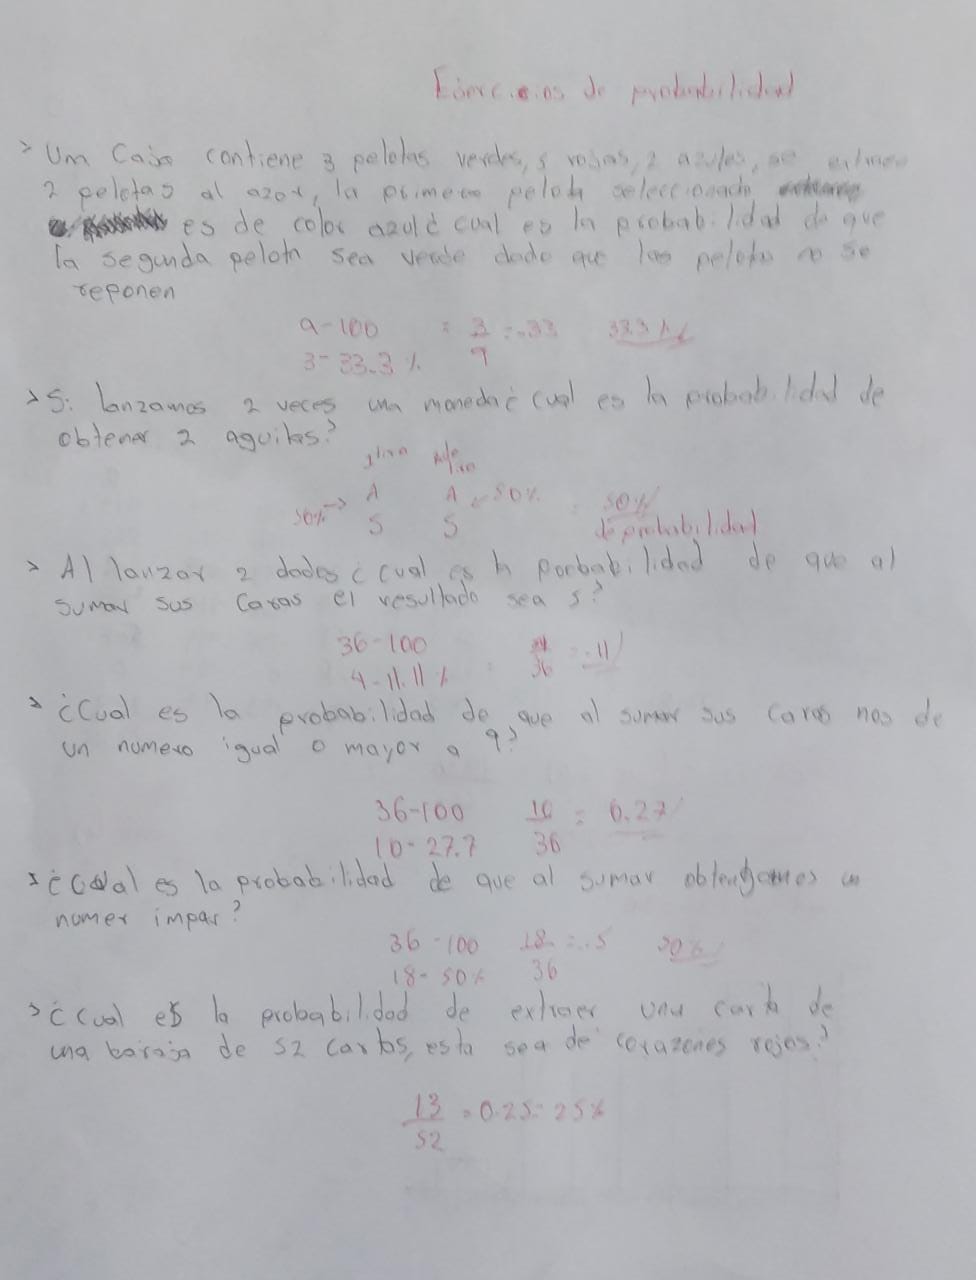 Ejercicios de probabilidad
> Um Caja contiene 3 pelotas verdes, 5 rojas, 2 azules, se extraen
2 pelotas al azar, la primera pelota seleccionada
es de color azul¿ cual es la probabilidad de que
la segunda pelota sea verde dado que las pelotas no se
reponen
9-100 = 3/9 = .33 33.3%
3-33.3%
> Si lanzamos 2 veces una moneda¿ cual es la probabilidad de
obtener 2 aguilas?
50% → A A ← 50% = 50%
S S de probabilidad
> Al lanzar 2 dados ¿ cual es la porbabilidad de que al
sumar sus caras el resultado sea 5?
36-100 = 4/36 = .11
4-11.11%
> ¿Cual es la probabilidad de que al sumar sus caras nos de
un numero igual o mayor a 9?
36-100 10/36 = 0.27
10-27.7
> ¿Cual es la probabilidad de que al sumar obtengamos un
numer impar?
36-100 18/36 = .5 50%
18-50%
> ¿Cual es la probabilidad de extraer una carta de
una baraja de 52 cartas, esta sea de corazones rojos?
13/52 = 0.25 = 25%